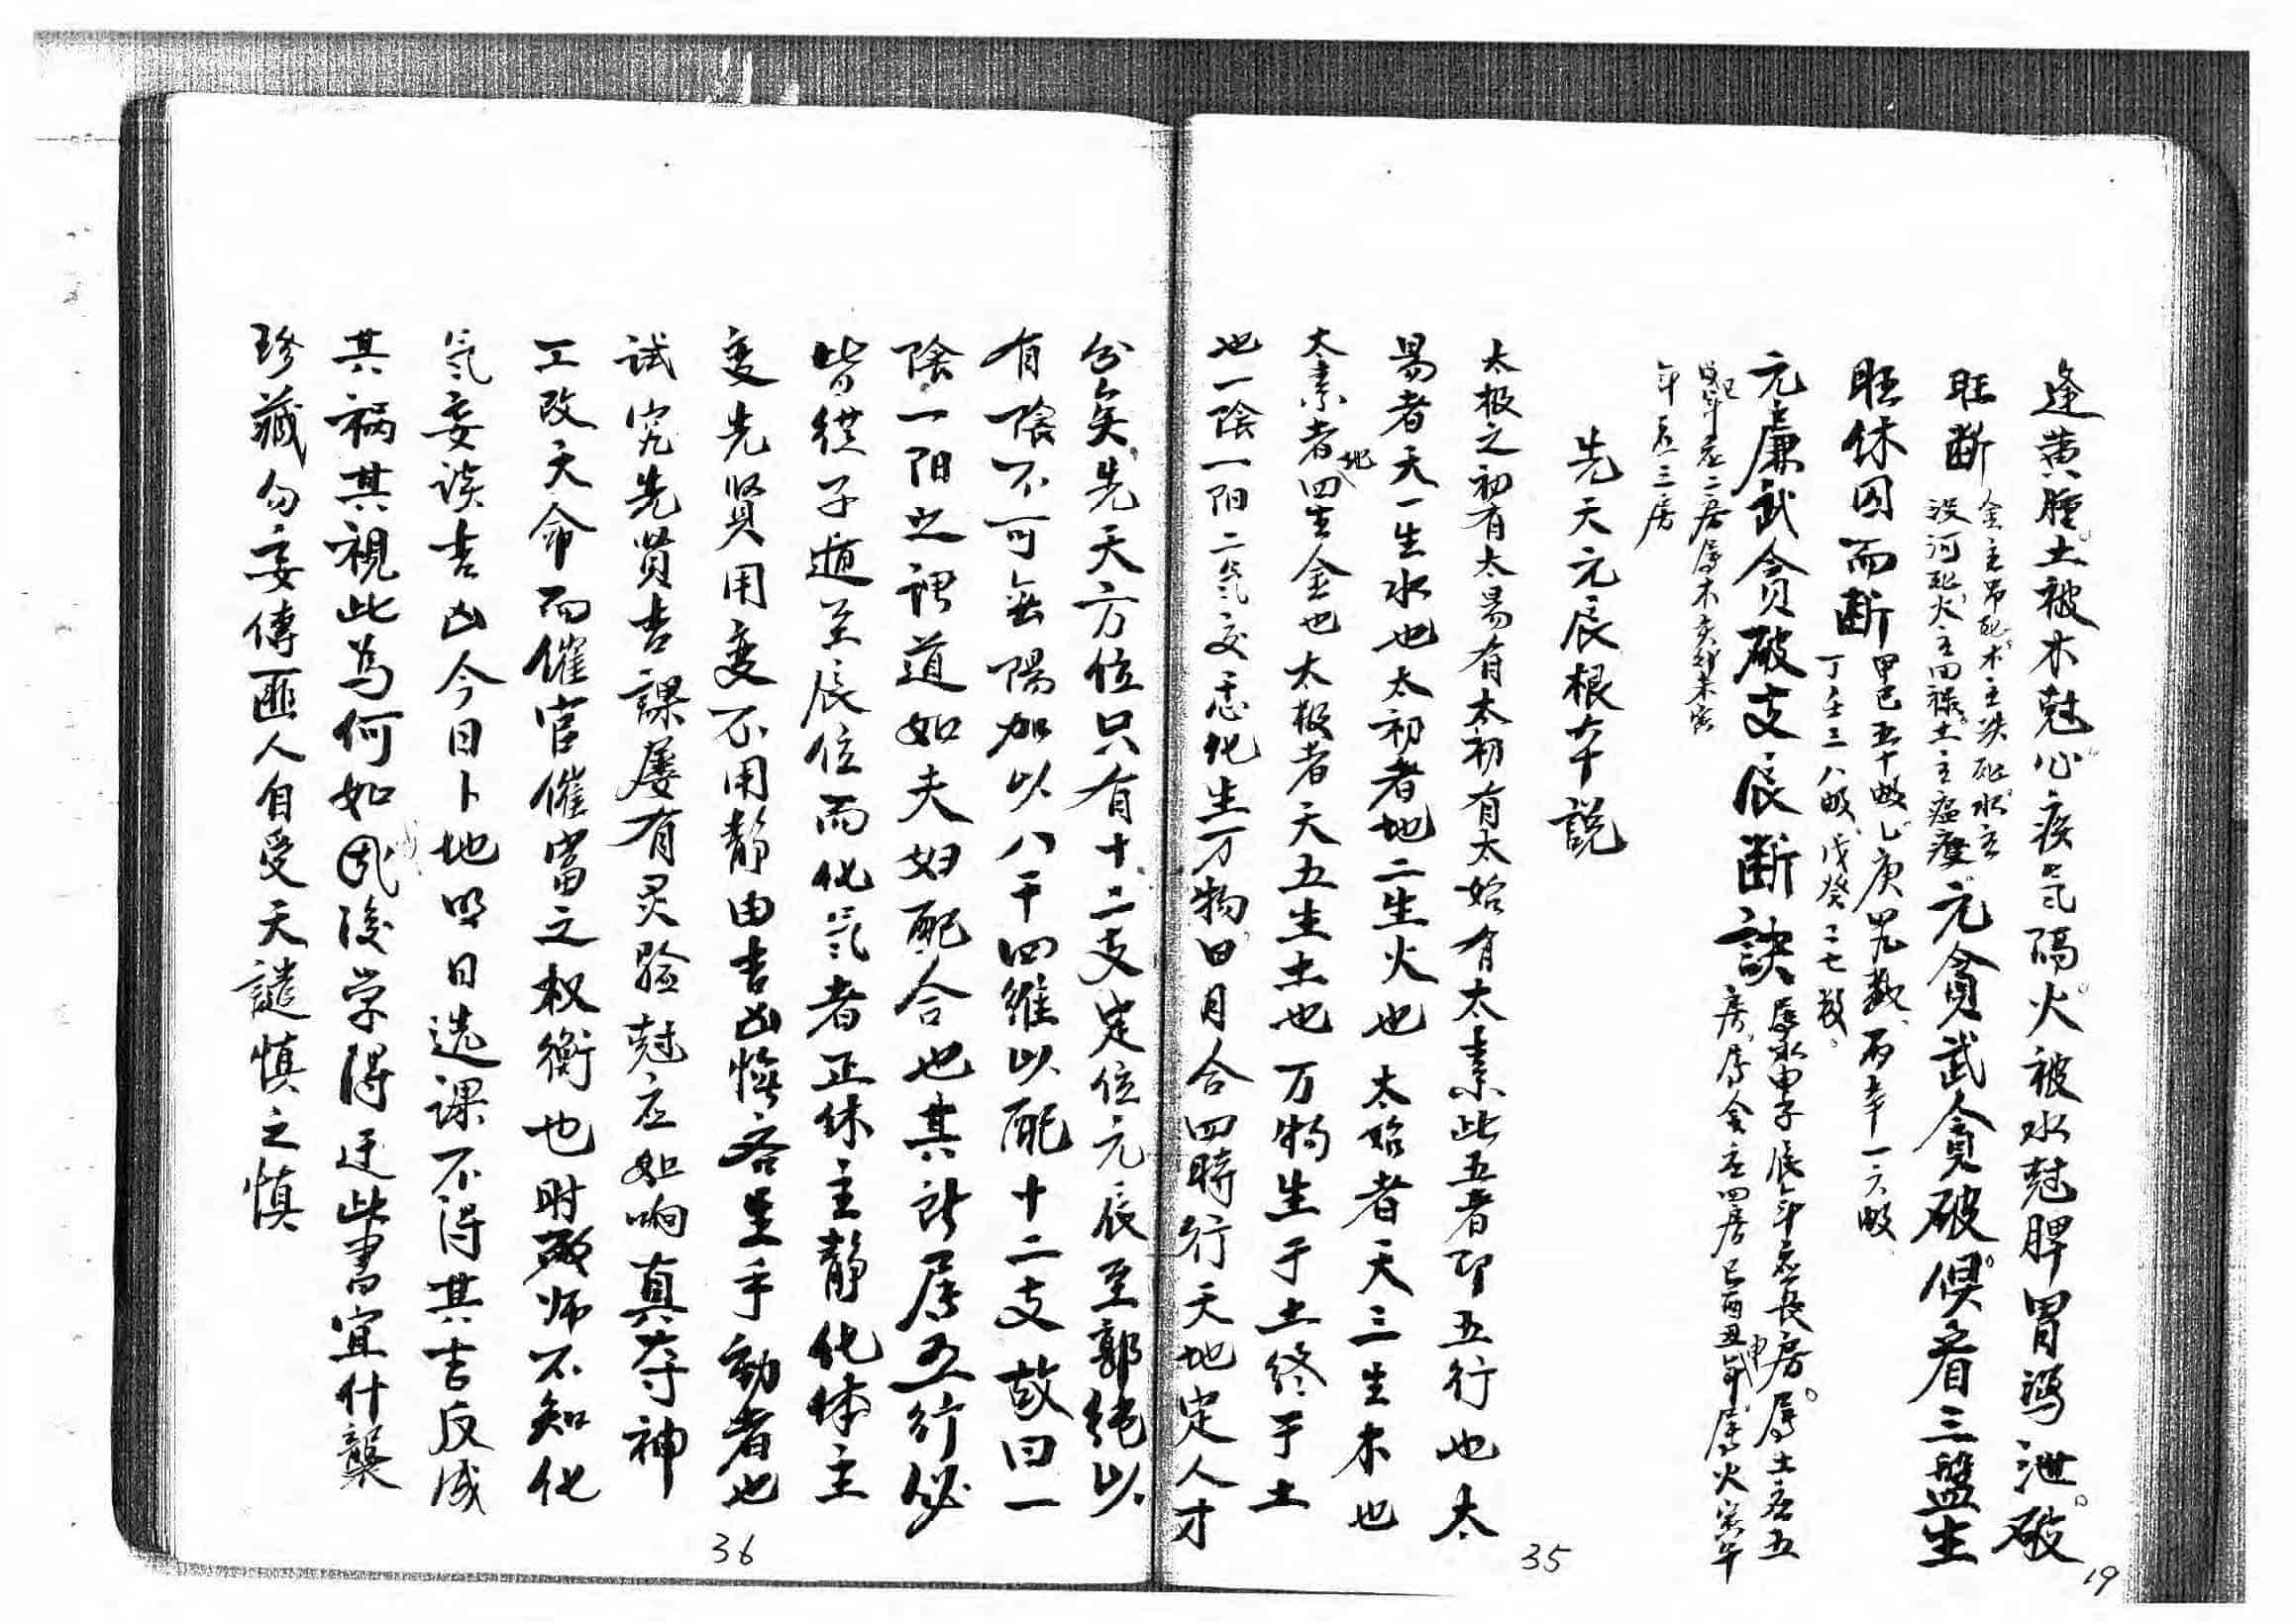 逢黄腫。土被木尅心疾气隔。火被水尅脾胃泻泄。破
旺断
金主吊死。木主跌死。水主
没河死。火主回禄。土主瘟疫。
元貪武貪破俱。看三盤生
旺休囚而断
甲己五十数、乙庚四九数、丙辛一六数、
丁壬三八数、戊癸二七数、
元廉武貪破支辰断訣
属水申子辰年应長房。属土应五
房、属金应四房巳酉丑年属火寅午
戌年应二房属木亥卯未宮
年应三房
先天元辰根本說
太极之初有太易有太初有太始有太素此五者即五行也太
易者天一生水也太初者地二生火也太始者天三生木也
太素者地四生金也太极者天五生土也万物生于土终于土
也一陰一阳二氣交感化生万物日月合四時行天地定人才
分矣。先天方位只有十二支定位元辰至郭純以
有陰不可無陽加以八干四維以配十二支故曰一
陰一阳之謂道如夫妇配合也其斯居五行必
皆從子遁至辰位而化氣者正体主靜化体主
变先贤用变不用靜由吉凶悔吝生乎動者也
試究先贤吉課屢有灵验尅应如响真夺神
工改天命而催官催富之权衡也时師不知化
氣妄谈吉凶今日卜地明日选課不得其吉反成
其禍其視此為何如 後学得迂此書宜什襲
珍藏勿妄傳匪人自受天譴慎之慎
36
35
19